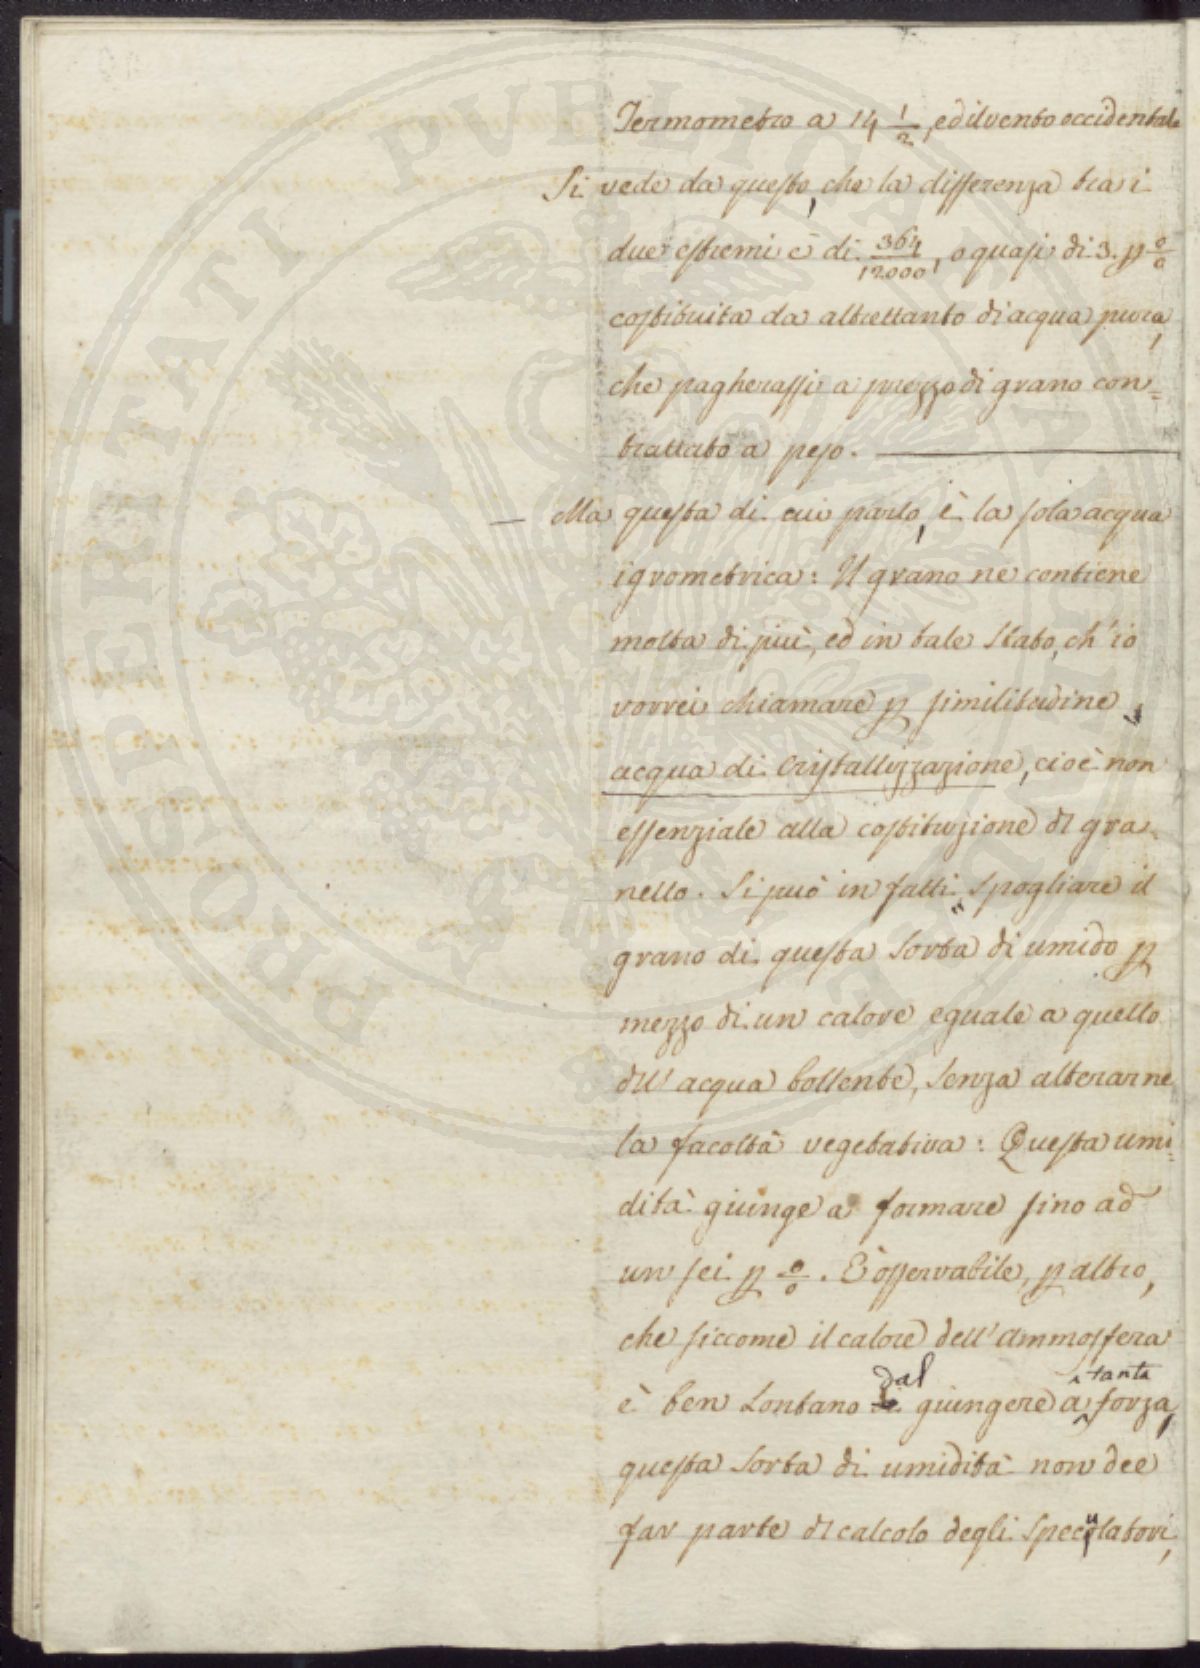 PROSPERITATI PVBLICAE AVGENDAE
Termometro a 14 1/2, ed il vento occidentale
Si vede da questo, che la differenza tra i
due estremi è di 364/12000, o quasi di 3. p 0/0
costituita da altrettanto di acqua pura,
che pagherassi a prezzo di grano con=
trattato a peso.
— Ma questa di cui parlo, è la sola acqua
igrometrica: Il grano ne contiene
molta di più, ed in tale stato, ch'io
vorrei chiamare p similitudine,
acqua di Cristallizzazione, cioè non
essenziale alla costituzione dl gra=
nello. Si può in fatti spogliare il
grano di questa sorta di umido p
mezzo di un calore eguale a quello
dll' acqua bollente, senza alterarne
la facoltà vegetativa: Questa umi=
dità giunge a formare sino ad
un sei p 0/0. È osservabile, p altro,
che siccome il calore dell' Ammosfera
è ben lontano dal giungere a tanta forza,
questa sorta di umidità non dee
far parte dl calcolo degli speculatori,